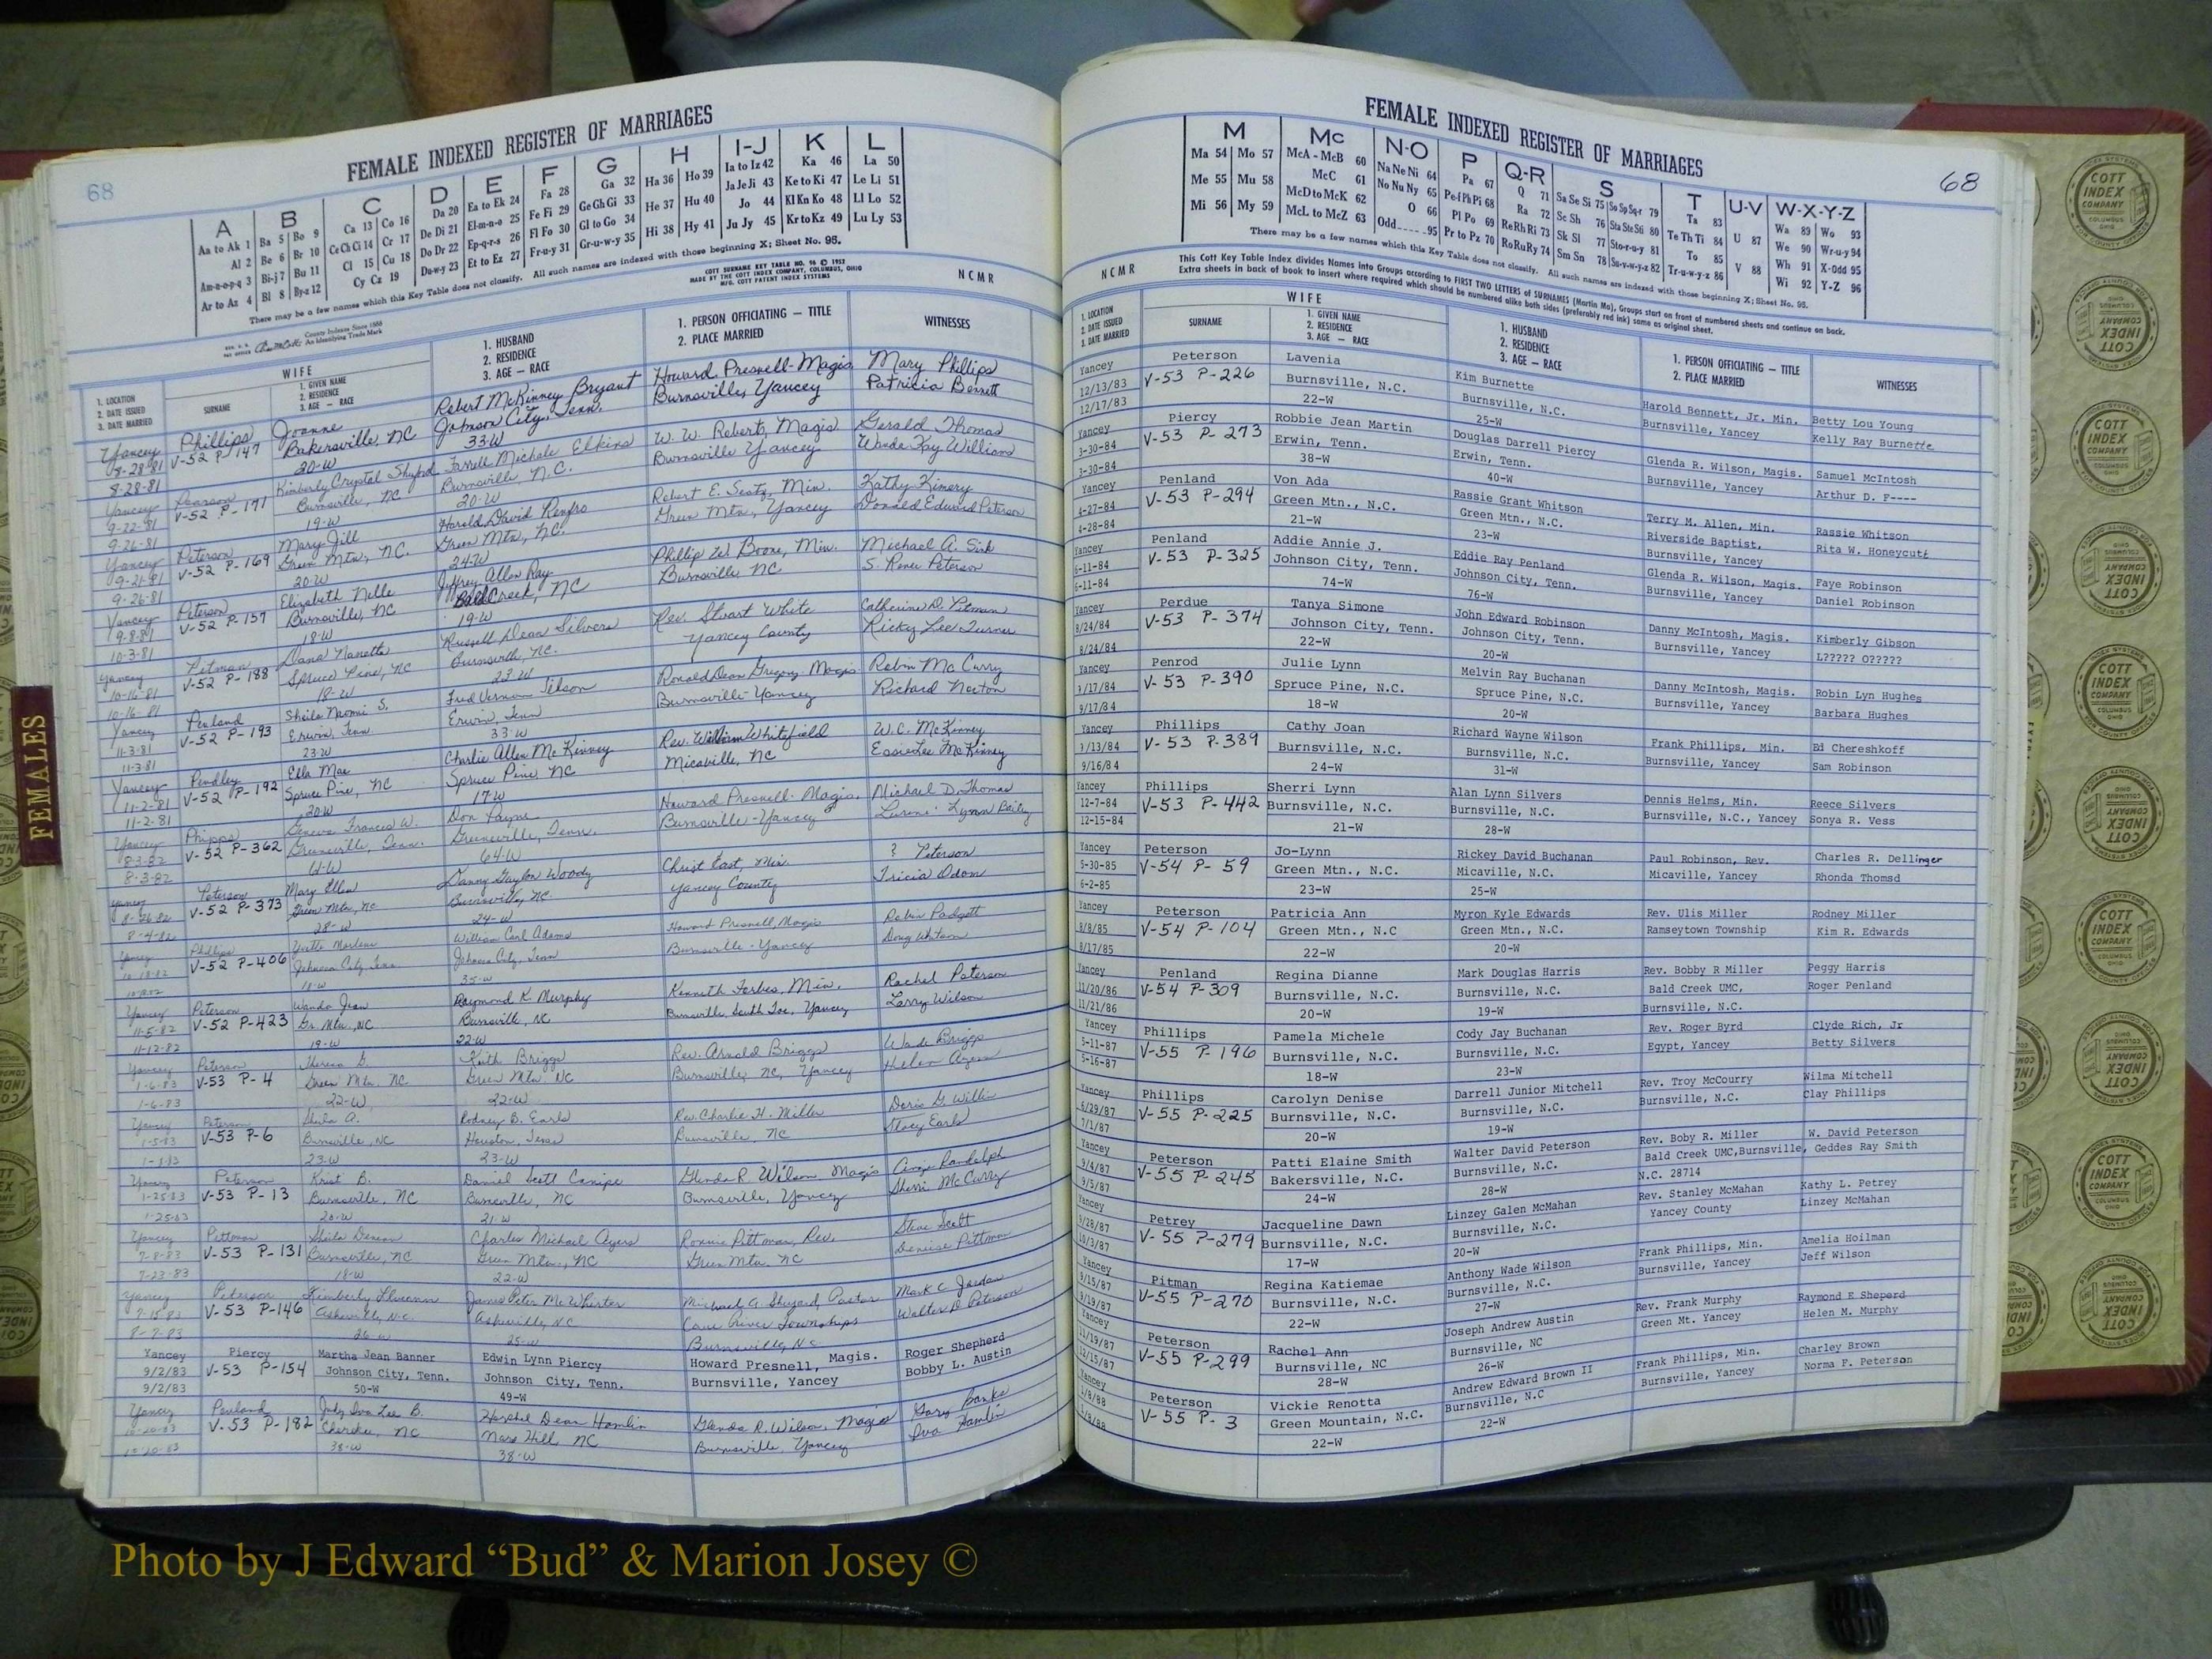 68
FEMALE INDEXED REGISTER OF MARRIAGES
A
Aa to Ak 1
Al 2
Am-n-o-p-q 3
Ar to Az 4
B
Ba 5 Bo 9
Be 6 Br 10
Bi-j 7 Bu 11
Bl 8 By-z 12
C
Ca 13 Co 16
Ce Ch Ci 14 Cr 17
Cl 15 Cu 18
Cy Cz 19
D
Da 20
De Di 21
Do Dr 22
Du-w-y 23
E
Ea to Ek 24
El-m-n-o 25
Ep-q-r-s 26
Et to Ez 27
F
Fa 28
Fe Fi 29
Fl Fo 30
Fr-u-y 31
G
Ga 32
Ge Gh Gi 33
Gl to Go 34
Gr-u-w-y 35
H
Ha 36 Ho 39
He 37 Hu 40
Hi 38 Hy 41
I-J
Ia to Iz 42
Ja Je Ji 43
Jo 44
Ju Jy 45
K
Ka 46
Ke to Ki 47
Kl Kn Ko 48
Kr to Kz 49
L
La 50
Le Li 51
Ll Lo 52
Lu Ly 53
There may be a few names which this Key Table does not classify. All such names are indexed with those beginning X; Sheet No. 95.
County Indexes Since 1888
An Identifying Trade Mark
COTT SURNAME KEY TABLE NO. 96 © 1952
MADE BY THE COTT INDEX COMPANY, COLUMBUS, OHIO
MFG. COTT PATENT INDEX SYSTEMS
NCMR
1. LOCATION
2. DATE ISSUED
3. DATE MARRIED
WIFE
SURNAME
1. GIVEN NAME
2. RESIDENCE
3. AGE — RACE
1. HUSBAND
2. RESIDENCE
3. AGE — RACE
1. PERSON OFFICIATING — TITLE
2. PLACE MARRIED
WITNESSES
Yancey Phillips Joanne Robert McKinney Bryant Howard Presnell-Magis Mary Phillips
8-28-81 V-52 P-147 Bakersville, NC Johnson City, Tenn. Burnsville, Yancey Patricia Bennett
8-28-81 20-W 33-W
Yancey Pearson Kimberly Crystal Farrell Michale Elkins W. W. Roberts, Magis Gerald Thomas
9-22-81 V-52 P-171 Burnsville, NC Burnsville, N.C. Burnsville Yancey Wanda Kay Williams
9-26-81 19-W 20-W
Yancey Peterson Mary Jill Harold David Renfro Robert E. Min. Kathy Kinsery
9-21-81 V-52 P-169 Green Mtn, N.C. Green Mtn, NC. Green Mtn, Yancey Donald Edward Peterson
9-26-81 20-W 24-W
Yancey Peterson Elizabeth Nelle Jeffrey Allen Ray Phillip W Boone, Min. Michael A. Sink
9-8-81 V-52 P-157 Burnsville, NC Bald Creek, NC Burnsville NC S. Renee Peterson
10-3-81 18-W 19-W
Yancey Pitman Dana Nanette Russell Dean Silvers Rev. Stuart White Catherine D. Pitman
10-16-81 V-52 P-188 Spruce Pine, NC Burnsville, NC. Yancey County Ricky Lee Turner
10-16-81 18-W 23-W
Yancey Penland Sheila Naomi S. Fred Vernon Tilson Ronald Dean Gregory Magis Robin McCurry
11-3-81 V-52 P-193 Erwin, Tenn Erwin, Tenn Burnsville-Yancey Richard Norton
11-3-81 23-W 33-W
Yancey Pendley Ella Mae Charlie Allen McKinney Rev. William Whitefield W.C. McKinney
11-2-81 V-52 P-192 Spruce Pine, NC Spruce Pine NC Micaville, NC Essie Lee McKinney
11-2-81 20-W 17-W
Yancey Phipps Geneva Frances W. Don Payne Howard Presnell-Magis. Michael D. Thomas
8-3-82 V-52 P-362 Greeneville, Tenn. Greeneville, Tenn. Burnsville-Yancey Lynn
8-3-82 61-W 64-W
Yancey Peterson Mary Ellen Danny Gaylon Woody Christ East, Min. ? Peterson
V-52 P-373 Green Mtn, NC Burnsville, NC. Yancey County Tricia Odom
8-4-82 28-W 24-W
Yancey Phillips Yvette Marlene William Carl Adams Howard Presnell, Magis Robin Padgett
V-52 P-406 Johnson City, Tenn Johnson City, Tenn Burnsville-Yancey Doug Watson
18-W 35-W
Yancey Peterson Wanda Jean Raymond K. Murphy Kenneth Forbes, Min. Rachel Peterson
11-5-82 V-52 P-423 Gr. Mtn, NC Burnsville, NC Burnsville South Toe, Yancey Larry Wilson
11-12-82 19-W 22-W
Yancey Peterson Theresa Keith Briggs Rev. Arnold Briggs Wade Briggs
1-6-83 V-53 P-4 Green Mtn. NC Green Mtn. NC Burnsville, NC, Yancey Helen
1-6-83 22-W 22-W
Yancey Peterson Sheila A. Rodney B. Earls Rev. Charlie H. Miller Doris G Willis
1-5-83 V-53 P-6 Burnsville, NC Houston, Texas Burnsville, NC Stacy Earls
23-W 23-W
Yancey Peterson Kristi B. Daniel Scott Canipe Glenda R. Wilson Magis Angie Randolph
1-25-83 V-53 P-13 Burnsville, NC Burnsville, NC Burnsville, Yancey Sherri McCurry
1-25-83 20-W 21-W
Yancey Pittman Sheila Denean Charles Michael Ayers Ronnie Pittman, Rev. Steve Scott
7-8-83 V-53 P-131 Burnsville, NC Green Mtn., NC Green Mtn. NC Denise Pittman
7-23-83 18-W 22-W
Yancey Peterson Kimberly James Peter McWhirter Michael A. Shepard, Pastor Mark C Jordan
V-53 P-146 Asheville, N.C. Asheville, NC Cane River Townships Walter D Peterson
8-7-83 26-W 25-W Burnsville, NC
Yancey Piercy Martha Jean Banner Edwin Lynn Piercy Howard Presnell, Magis. Roger Shepherd
9/2/83 V-53 P-154 Johnson City, Tenn. Johnson City, Tenn. Burnsville, Yancey Bobby L. Austin
9/2/83 50-W 49-W
Yancey Penland Judy Iva Lee B. Herschel Dean Hamlin Glenda R. Wilson, Magis Gary Banks
10-20-83 V-53 P-182 Cherokee, NC Mars Hill NC Burnsville, Yancey Iva Hamlin
10-20-83 38-W 38-W
FEMALES
FEMALE INDEXED REGISTER OF MARRIAGES
68
M
Ma 54 Mo 57
Me 55 Mu 58
Mi 56 My 59
Mc
McA - McB 60
McC 61
McD to McK 62
McL to McZ 63
N-O
Na Ne Ni 64
No Nu Ny 65
O 66
Odd-----95
P
Pa 67
Pe-f Ph Pi 68
Pl Po 69
Pr to Pz 70
Q-R
Q 71
Ra 72
Re Rh Ri 73
Ro Ru Ry 74
S
Sa Se Si 75 So Sp Sq-r 79
Sc Sh 76 Sta Ste Sti 80
Sk Sl 77 Sto-r-u-y 81
Sm Sn 78 Su-v-w-y-z 82
T
Ta 83
Te Th Ti 84
To 85
Tr-u-w-y-z 86
U-V
U 87
V 88
W-X-Y-Z
Wa 89 Wo 93
We 90 Wr-u-y 94
Wh 91 X-Odd 95
Wi 92 Y-Z 96
There may be a few names which this Key Table does not classify. All such names are indexed with those beginning X; Sheet No. 95.
NCMR
This Cott Key Table Index divides Names into Groups according to FIRST TWO LETTERS of SURNAMES (Martin Ma), Groups start on front of numbered sheets and continue on back.
Extra sheets in back of book to insert where required which should be numbered alike both sides (preferably red ink) same as original sheet.
1. LOCATION
2. DATE ISSUED
3. DATE MARRIED
WIFE
SURNAME
1. GIVEN NAME
2. RESIDENCE
3. AGE — RACE
1. HUSBAND
2. RESIDENCE
3. AGE — RACE
1. PERSON OFFICIATING — TITLE
2. PLACE MARRIED
WITNESSES
Yancey Peterson Lavenia Kim Burnette Harold Bennett, Jr. Min. Betty Lou Young
12/13/83 V-53 P-226 Burnsville, N.C. Burnsville, N.C. Burnsville, Yancey Kelly Ray Burnette
12/17/83 22-W 25-W
Yancey Piercy Robbie Jean Martin Douglas Darrell Piercy Glenda R. Wilson, Magis. Samuel McIntosh
3-30-84 V-53 P-273 Erwin, Tenn. Erwin, Tenn. Burnsville, Yancey Arthur D. F----
3-30-84 38-W 40-W
Yancey Penland Von Ada Rassie Grant Whitson Terry M. Allen, Min. Rassie Whitson
4-27-84 V-53 P-294 Green Mtn., N.C. Green Mtn., N.C. Riverside Baptist, Rita W. Honeycutt
4-28-84 21-W 23-W Burnsville, Yancey
Yancey Penland Addie Annie J. Eddie Ray Penland Glenda R. Wilson, Magis. Faye Robinson
6-11-84 V-53 P-325 Johnson City, Tenn. Johnson City, Tenn. Burnsville, Yancey Daniel Robinson
6-11-84 74-W 76-W
Yancey Perdue Tanya Simone John Edward Robinson Danny McIntosh, Magis. Kimberly Gibson
8/24/84 V-53 P-374 Johnson City, Tenn. Johnson City, Tenn. Burnsville, Yancey L????? O?????
8/24/84 22-W 20-W
Yancey Penrod Julie Lynn Melvin Ray Buchanan Danny McIntosh, Magis. Robin Lyn Hughes
9/17/84 V-53 P-390 Spruce Pine, N.C. Spruce Pine, N.C. Burnsville, Yancey Barbara Hughes
9/17/84 18-W 20-W
Yancey Phillips Cathy Joan Richard Wayne Wilson Frank Phillips, Min. Ed Chereshkoff
9/13/84 V-53 P-389 Burnsville, N.C. Burnsville, N.C. Burnsville, Yancey Sam Robinson
9/16/84 24-W 31-W
Yancey Phillips Sherri Lynn Alan Lynn Silvers Dennis Helms, Min. Reece Silvers
12-7-84 V-53 P-442 Burnsville, N.C. Burnsville, N.C. Burnsville, N.C., Yancey Sonya R. Vess
12-15-84 21-W 28-W
Yancey Peterson Jo-Lynn Rickey David Buchanan Paul Robinson, Rev. Charles R. Dellinger
5-30-85 V-54 P-59 Green Mtn., N.C. Micaville, N.C. Micaville, Yancey Rhonda Thomsd
6-2-85 23-W 25-W
Yancey Peterson Patricia Ann Myron Kyle Edwards Rev. Ulis Miller Rodney Miller
8/8/85 V-54 P-104 Green Mtn., N.C Green Mtn., N.C. Ramseytown Township Kim R. Edwards
8/17/85 22-W 20-W
Yancey Penland Regina Dianne Mark Douglas Harris Rev. Bobby R Miller Peggy Harris
11/20/86 V-54 P-309 Burnsville, N.C. Burnsville, N.C. Bald Creek UMC, Roger Penland
11/21/86 20-W 19-W Burnsville, N.C.
Yancey Phillips Pamela Michele Cody Jay Buchanan Rev. Roger Byrd Clyde Rich, Jr
5-11-87 V-55 P-196 Burnsville, N.C. Burnsville, N.C. Egypt, Yancey Betty Silvers
5-16-87 18-W 23-W
Yancey Phillips Carolyn Denise Darrell Junior Mitchell Rev. Troy McCourry Wilma Mitchell
6/29/87 V-55 P-225 Burnsville, N.C. Burnsville, N.C. Burnsville, N.C. Clay Phillips
7/1/87 20-W 19-W
Yancey Peterson Patti Elaine Smith Walter David Peterson Rev. Boby R. Miller W. David Peterson
9/4/87 V-55 P-245 Bakersville, N.C. Burnsville, N.C. Bald Creek UMC,Burnsville, Geddes Ray Smith
9/5/87 24-W 28-W N.C. 28714
Yancey Petrey Jacqueline Dawn Linzey Galen McMahan Rev. Stanley McMahan Kathy L. Petrey
9/28/87 V-55 P-279 Burnsville, N.C. Burnsville, N.C. Yancey County Linzey McMahan
10/3/87 17-W 20-W
Yancey Pitman Regina Katiemae Anthony Wade Wilson Frank Phillips, Min. Amelia Hoilman
9/15/87 V-55 P-270 Burnsville, N.C. Burnsville, N.C. Burnsville, Yancey Jeff Wilson
9/19/87 22-W 27-W
Yancey Peterson Rachel Ann Joseph Andrew Austin Rev. Frank Murphy Raymond E Sheperd
11/19/87 V-55 P-299 Burnsville, NC Burnsville, NC Green Mt. Yancey Helen M. Murphy
12/15/87 28-W 26-W
Yancey Peterson Vickie Renotta Andrew Edward Brown II Frank Phillips, Min. Charley Brown
1/8/88 V-55 P-3 Green Mountain, N.C. Burnsville, N.C Burnsville, Yancey Norma F. Peterson
1/8/88 22-W 22-W
COTT
INDEX
COMPANY
COLUMBUS
OHIO
Photo by J Edward “Bud” & Marion Josey ©